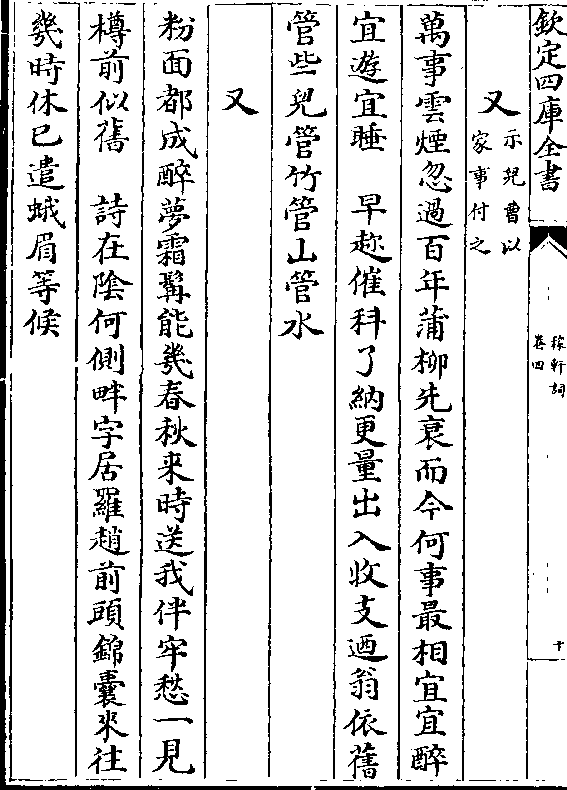 欽定四庫全書
稼軒詞
卷四
十
又示兒曹以
家事付之
萬事雲煙忽過百年蒲柳先衰而今何事最相宜宜醉
宜遊宜睡　早趂催科了納更量出入收支廼翁依舊
管些兒管竹管山管水
又
粉面都成醉夢霜髯能幾春秋來時送我伴牢愁一見
樽前似舊　詩在陰何側畔字居羅趙前頭錦囊來往
幾時休已遣蛾眉等候